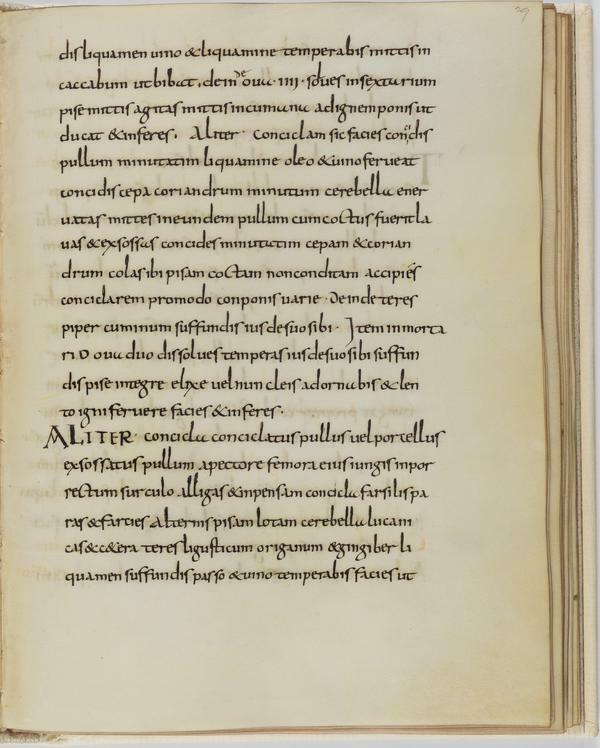 29
dis liquamen uino & liquamine temperabis mittis in
caccabum ut bibat, dein de oua · IIII · solues in sextarium
pise mittis agitas mittis in cumana ad ignem ponis ut
ducat & inferes. Aliter · Conciclam sic facies concidis
pullum minutatim liquamine oleo & uino ferueat
concidis cepa coriandrum minutum cerebella ener
uatas mittes in eundem pullum cum coctus fuerit la
uas & exsossas concides minutatim cepam & corian
drum colas ibi pisam coctam non conditam accipies
conciclarem pro modo conponis uarie · Deinde teres
piper cuminum suffundis ius de suo sibi · Item in morta
ri · D oua duo dissolues temperas ius de suo sibi suffun
dis pise integre elixe uel nucleis adornabis & len
to igni feruere facies & inferes ·
ALITER · concicla conciclatus pullus uel porcellus
exsossatus pullum a pectore femora eius iungis in por
rectum surculo alligas & inpensam concicla farsilis pa
ras & farcies alternis pisam lotam cerebella lucani
cas & c&era teres ligusticum origanum & gingiber li
quamen suffundis passo & uino temperabis facies ut